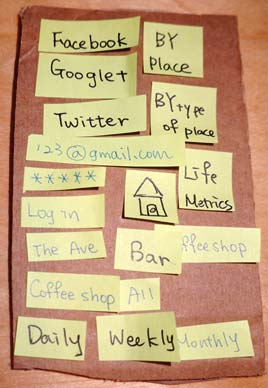 Facebook
BY
Place
Google+
BY type
of place
Twitter
123@gmail.com
*****
Life
Metrics
Log in
The Ave
Bar
ffeeshop
Coffee shop
All
Daily
Weekly
Monthly